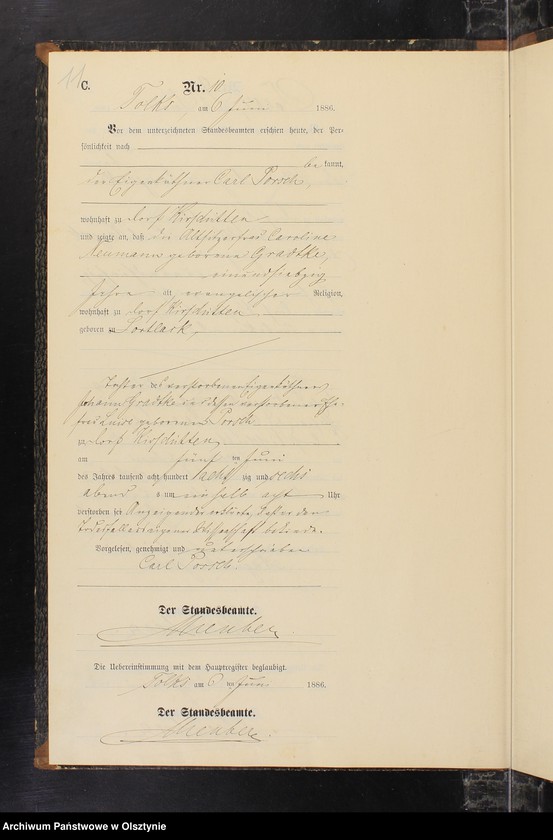 11
C.
Nr. 10
Tolks, am 6 Juni 1886.
Vor dem unterzeichneten Standesbeamten erschien heute, der Per-
sönlichkeit nach
be kannt,
der Eigenkäthner Carl Porsch,
wohnhaft zu Dorf Kirschitten
und zeigte an, daß die Altsitzerfrau Caroline
Neumann geborene Gradtke,
einundsiebzig
Jahre alt evangelischer Religion,
wohnhaft zu Dorf Kirschitten
geboren zu
Tochter des verstorbenen Eigenkäthners
Johann Gradtke und dessen verstorbener Ehe-
frau Luise geborenen Porsch
zu Dorf Kirschitten,
am fünf ten Juni
des Jahres tausend acht hundert acht zig und sechs
Abend s um ein halb acht Uhr
verstorben sei Anzeigender erklärte, daß er den
Todesfall aus eigener Wissenschaft bekunde.
Vorgelesen, genehmigt und unterschrieben
Carl Porsch.
Der Standesbeamte.
Die Uebereinstimmung mit dem Hauptregister beglaubigt.
Tolks am 6 ten Juni 1886.
Der Standesbeamte.
Archiwum Państwowe w Olsztynie